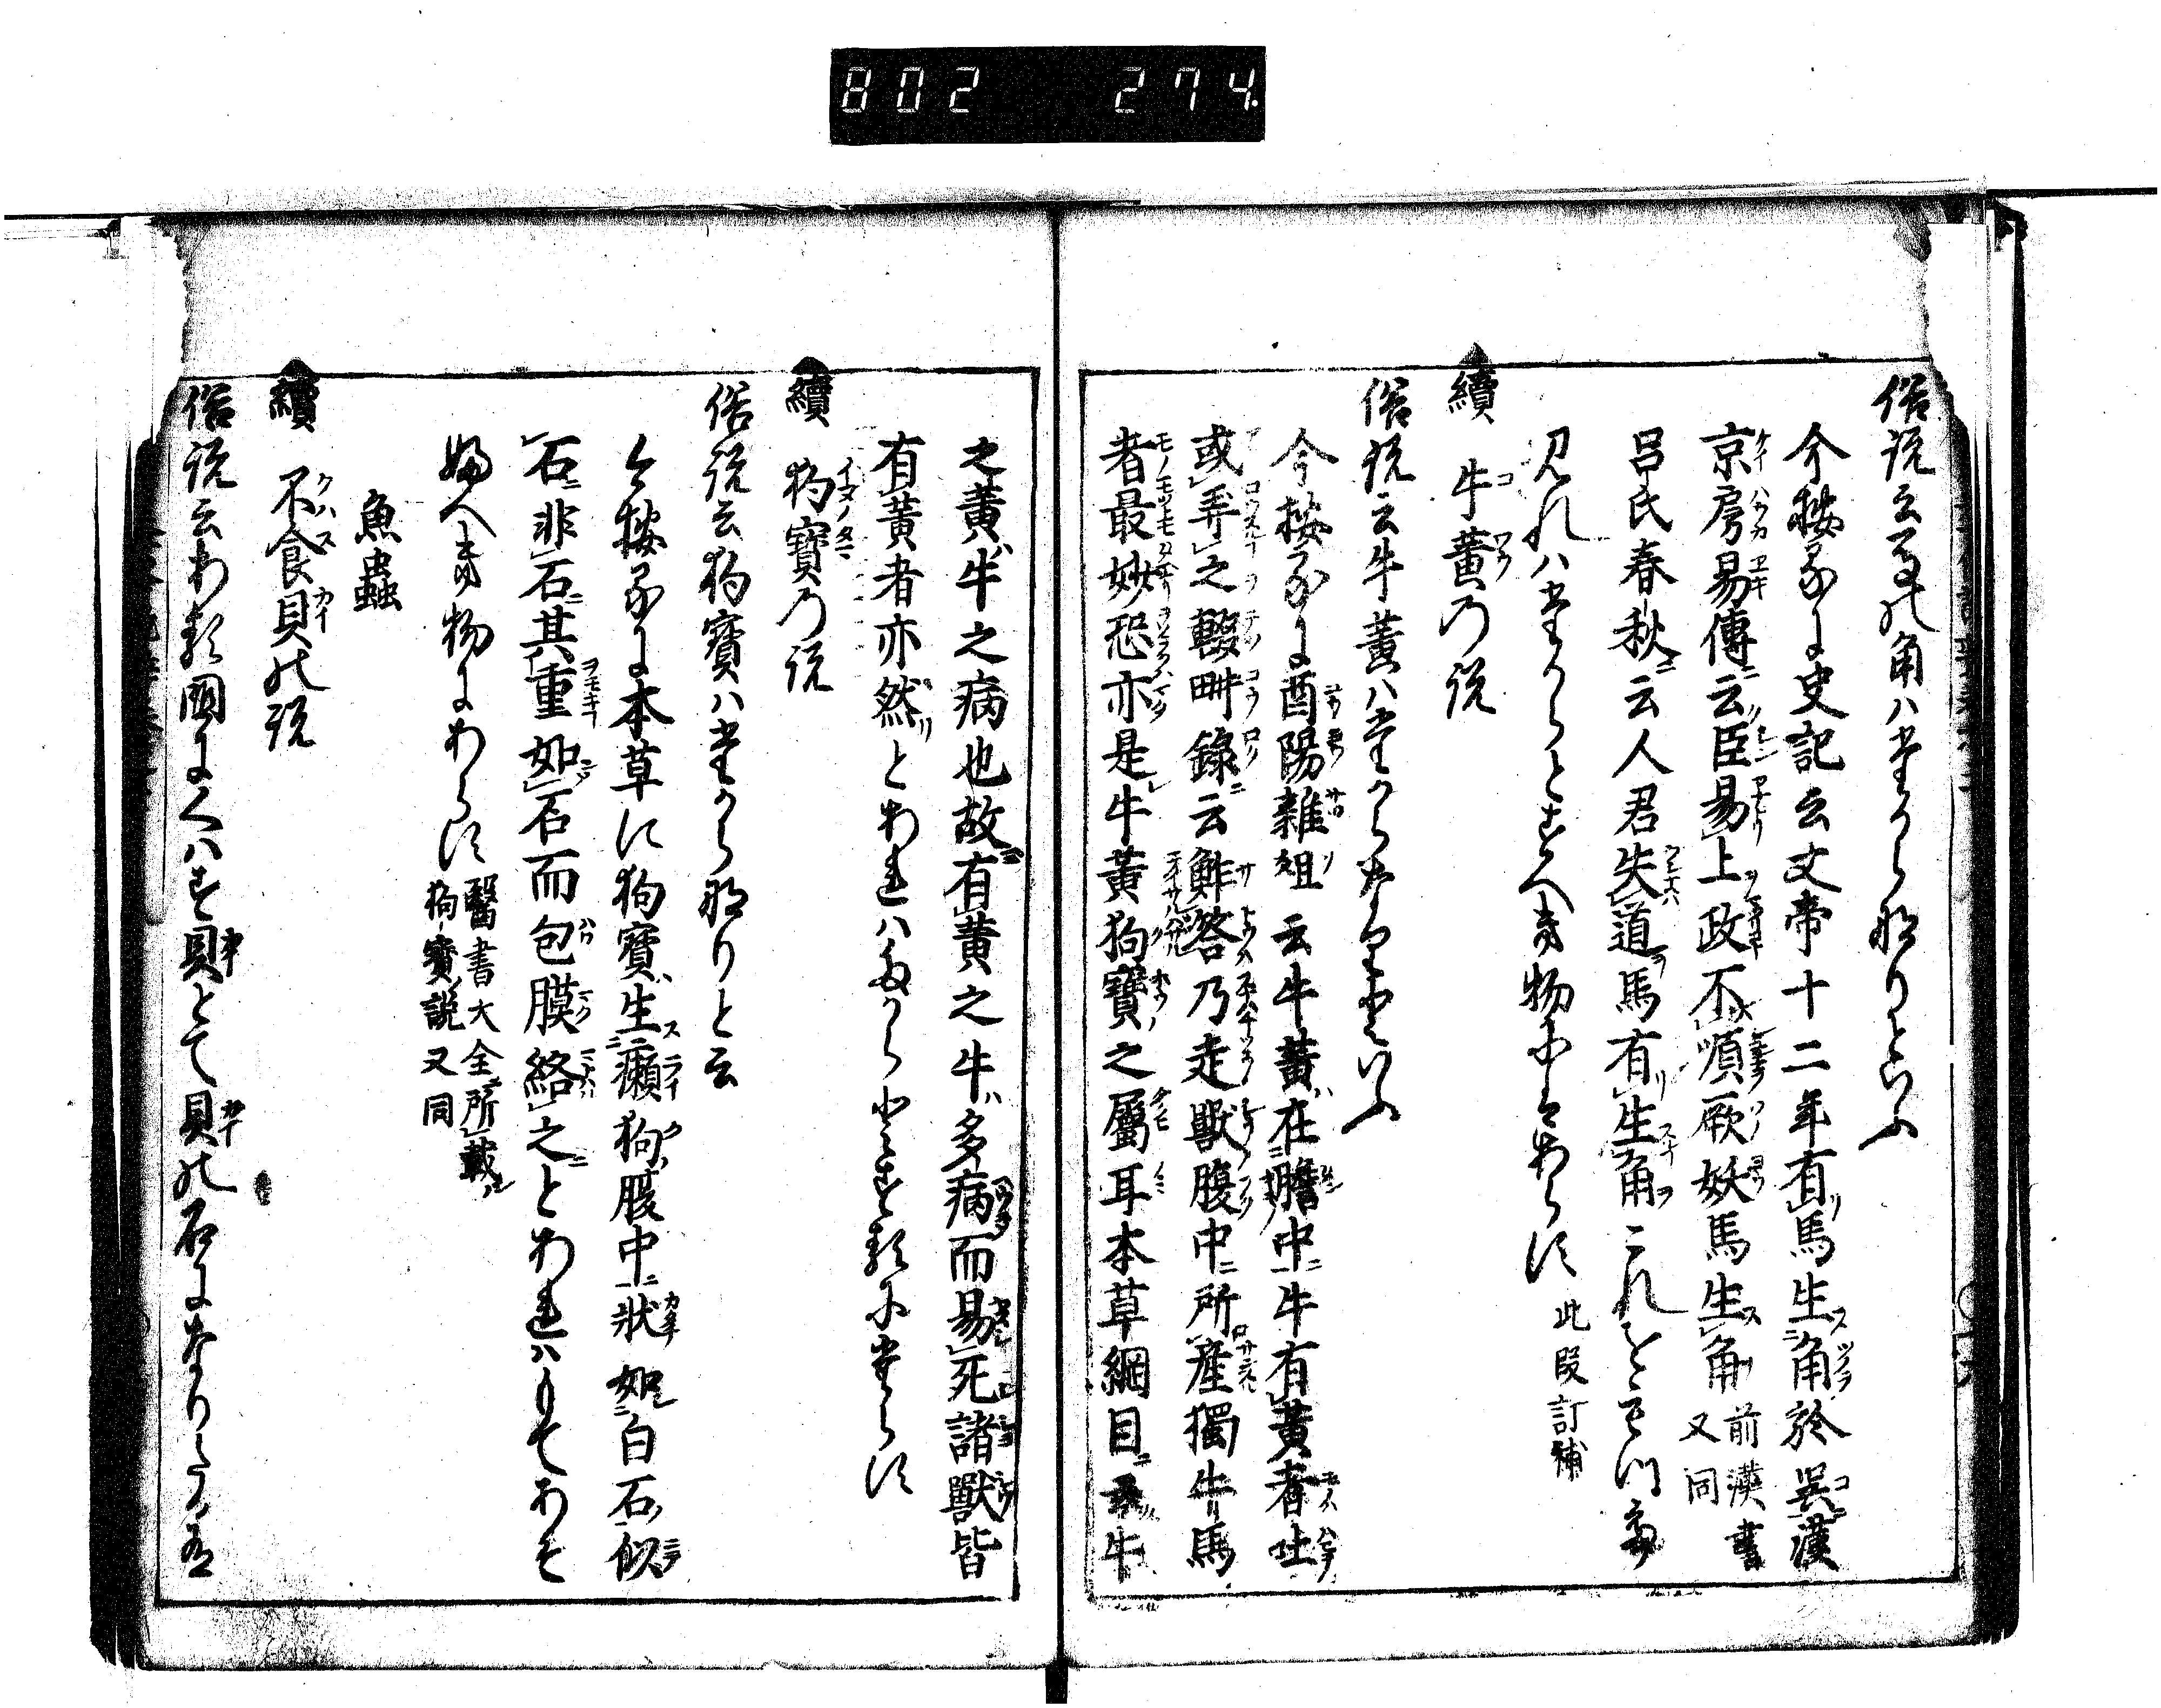 802 274.
俗説云馬の角ハたからなりといふ
今按るに史記云文帝十二年有馬生角於呉漢
京房易傳云臣易上政不順厥妖馬生角 前漢書又同
呂氏春秋云人君失道馬有生角これをもつて
見れハたからとすへき物にハあらす 此段訂補
續 牛黄乃説
俗説云牛黄ハたからなりといふ
今按るに酉陽雜俎云牛黄在膽中牛有黄者吐
或弄之輟畊錄云鮓荅乃走獸腹中所産獨牛馬
者最妙恐亦是牛黄狗寶之屬耳本草綱目云牛
之黄牛之病也故有黄之牛多病而易死諸獸皆
有黄者亦然とあれハたからとする類にあらす
續 狗寶乃説
俗説云狗寶ハたからなりと云
今按るに本草に狗寶生癩狗腹中狀如白石似
石非石其重如石而包膜絡之とあれハもてあそ
ふへき物にあらす 醫書大全所載狗寶説又同
魚蟲
續 不食貝の説
俗説云ある國にくハす貝とて貝の石になりたる有